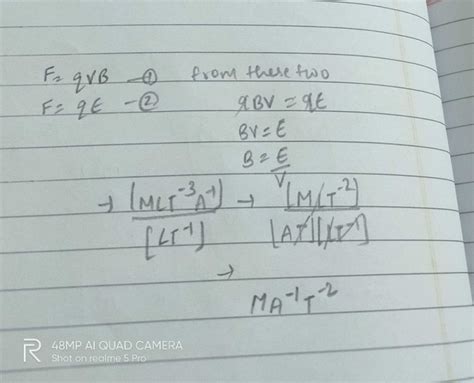 F = qVB —① from these two
F = qE —② qBV = qE
BV = E
B = E/V
→ [MLT⁻³A⁻¹]/[LT⁻¹] → [MLT⁻²]/[AT][LT⁻¹]
→
MA⁻¹T⁻²
R 48MP AI QUAD CAMERA
Shot on realme 5 Pro